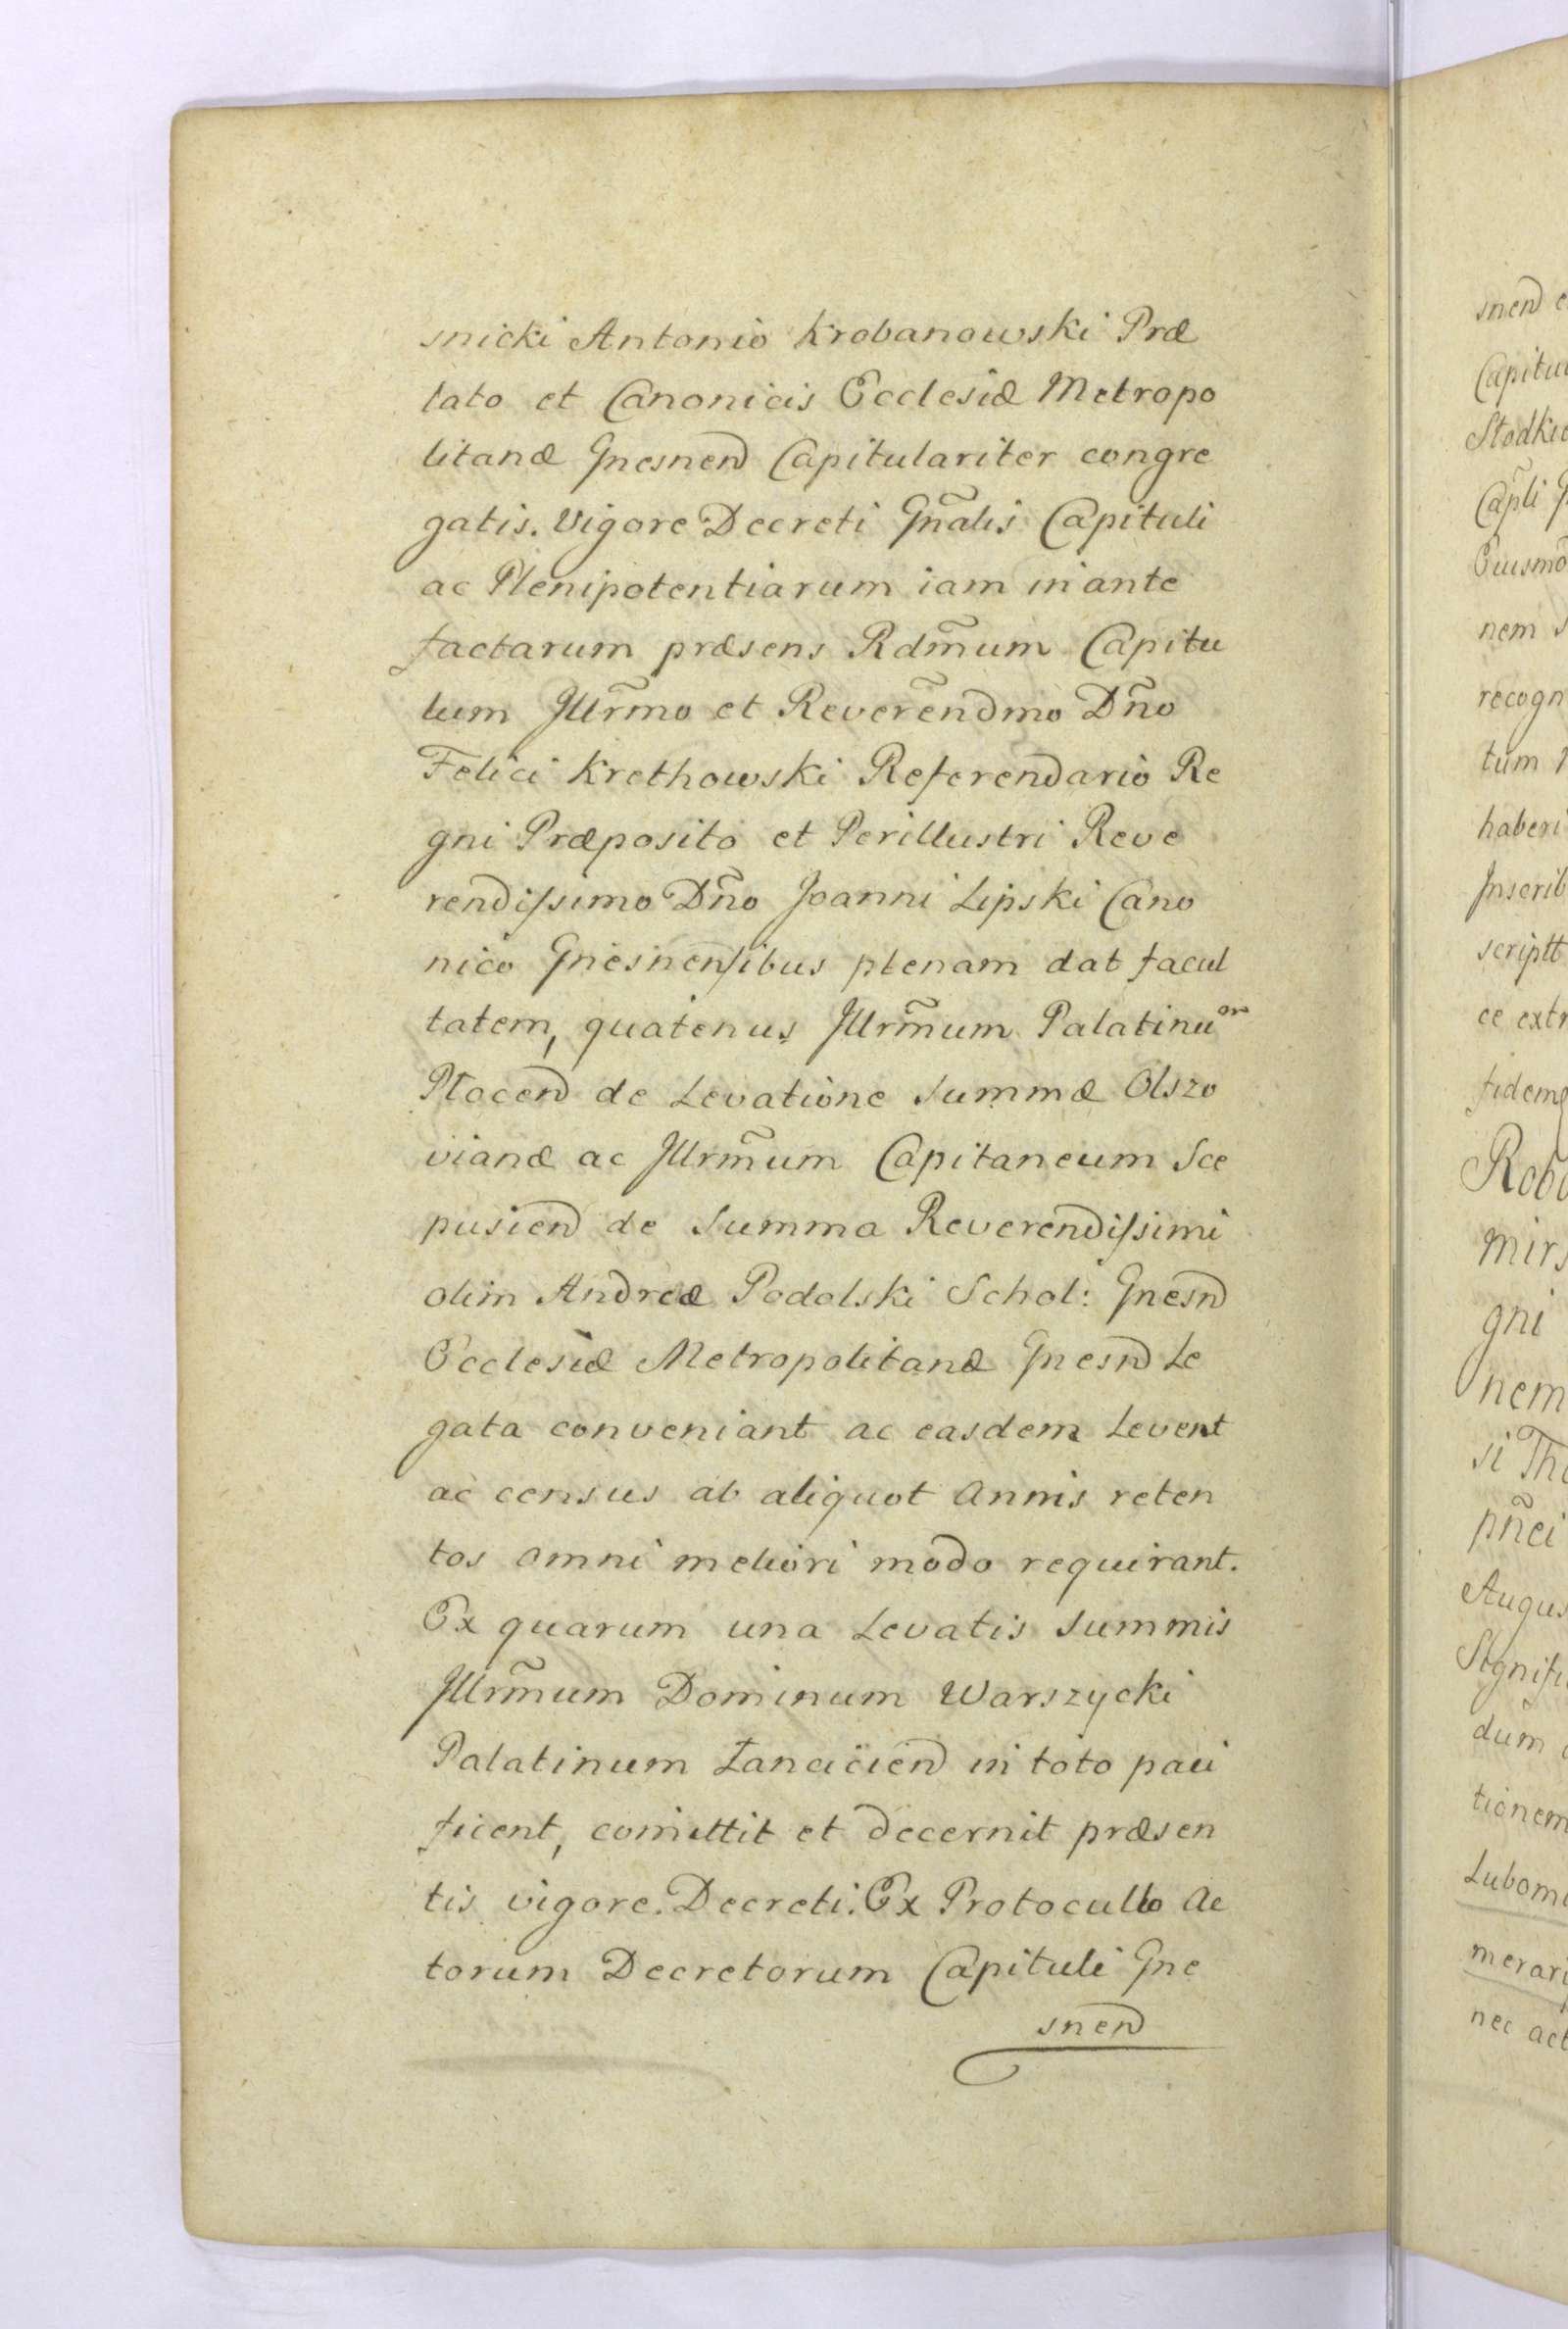 snicki Antonio Krobanowski Præ
lato et Canonicis Ecclesiæ Metropo
litanæ Gnesnen͠ Capitulariter congre
gatis. Vigore Decreti Gñalis Capituli
ac Plenipotentiarum iam in ante
factarum præsens Rdm̃um Capitu
lum Jllr̃mo et Reverẽndmo Dño
Felici Krethowski Referendario Re
gni Præposito et Perillustri Reve
rendiſsimo Dño Joanni Lipski Cano
nico Gnesnenſibus plenam dat facul
tatem, quatenus Jllrm̃um Palatinu͠m
Plocen͠ de Levatione Summæ Olszo
vianæ ac Jllrm̃um Capitaneum Sce
pusien͠ de Summa Reverendiſsimi
olim Andreæ Podolski Schol: Gnesn͠
Ecclesiæ Metropolitanæ Gnesn͠ Le
gata conveniant ac easdem Levent
ac census ab aliquot Annis reten
tos omni meliori modo requirant.
Ex quarum una Levatis Summis
Jllrm̃um Dominum Warszycki
Palatinum Łancicien͠ in toto paci
ficent, comittit et decernit præsen
tis vigore. Decreti. Ex Protocullo Ac
torum Decretorum Capituli Gne
snen͠
snen͠
Capitu
Capli
nem
recogn
tum
haberi
Jnscrib
scriptt
ce extr
gni
nem
si
pñci
Augus
dum
tionem
Lubom
merari
nec act